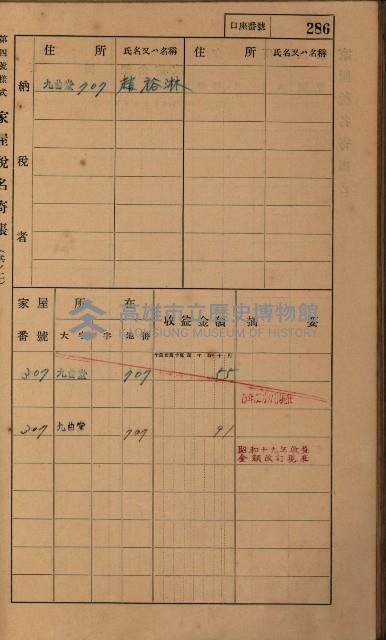 口座番號 286
第四號樣式 家屋稅名寄帳
住所 氏名又ハ名稱 住所 氏名又ハ名稱
納稅者
九曲堂 707 趙裕淋
高雄市立歷史博物館
KAOHSIUNG MUSEUM OF HISTORY
家屋番號 所在 收益金額 摘要
大字 字 地番
307 九曲堂 707 55
307 九曲堂 707 91
昭和十九年收益
金額改訂現在